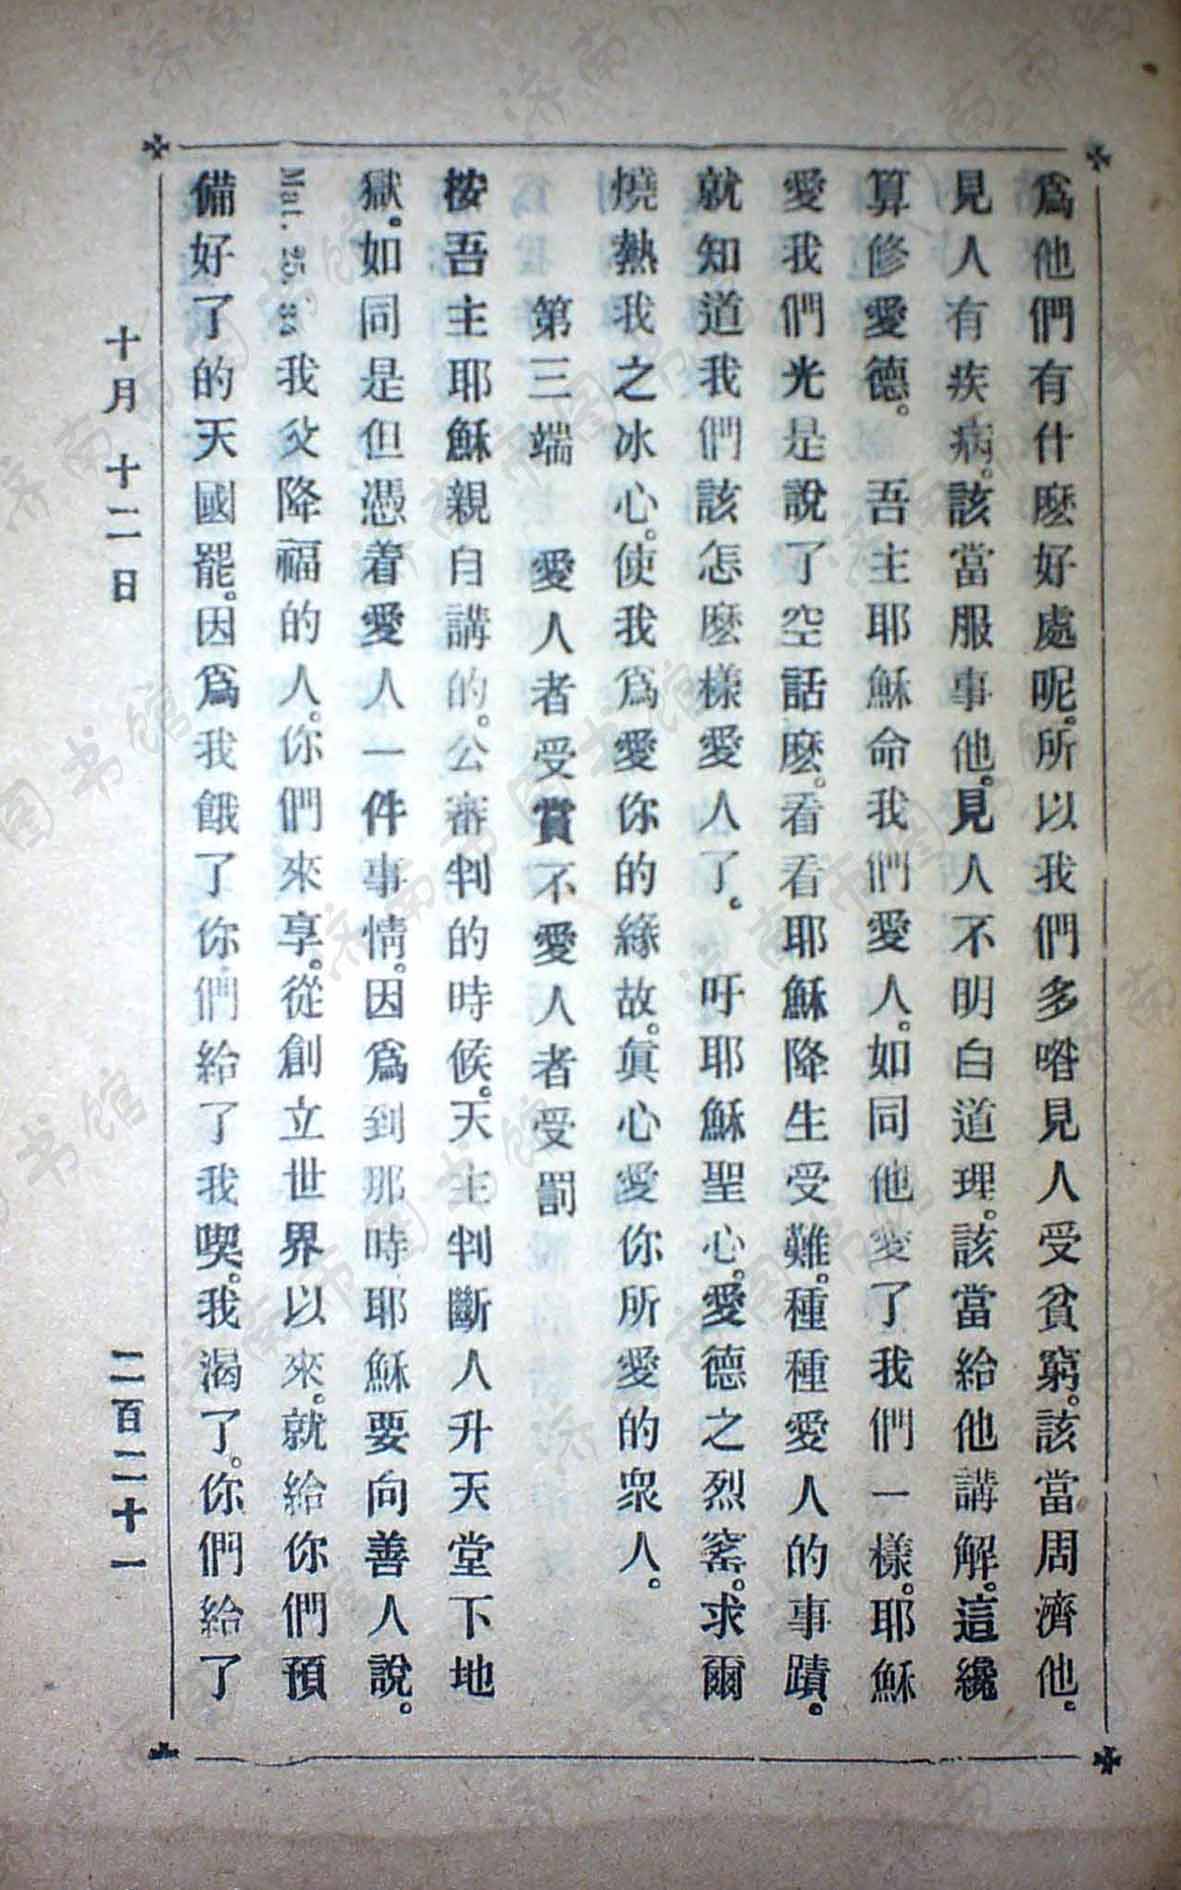 爲他們有什麽好處呢。所以我們多喒見人受貧窮。該當周濟他。
見人有疾病。該當服事他。見人不明白道理。該當給他講解。這纔
算修愛德。　吾主耶穌命我們愛人。如同他愛了我們一樣。耶穌
愛我們光是說了空話麽。看看耶穌降生受難。種種愛人的事蹟。
就知道我們該怎麽樣愛人了。　吁耶穌聖心。愛德之烈窰。求爾
燒熱我之冰心。使我爲愛你的緣故。眞心愛你所愛的衆人。
第三端　愛人者受賞不愛人者受罰
按吾主耶穌親自講的。公審判的時候。天主判斷人升天堂下地
獄。如同是但憑着愛人一件事情。因爲到那時耶穌要向善人說。
Mat. 25. 34 我父降福的人。你們來享。從創立世界以來。就給你們預
備好了的天國罷。因爲我餓了你們給了我喫。我渴了。你們給了
十月十二日　二百二十一
济南市图书馆